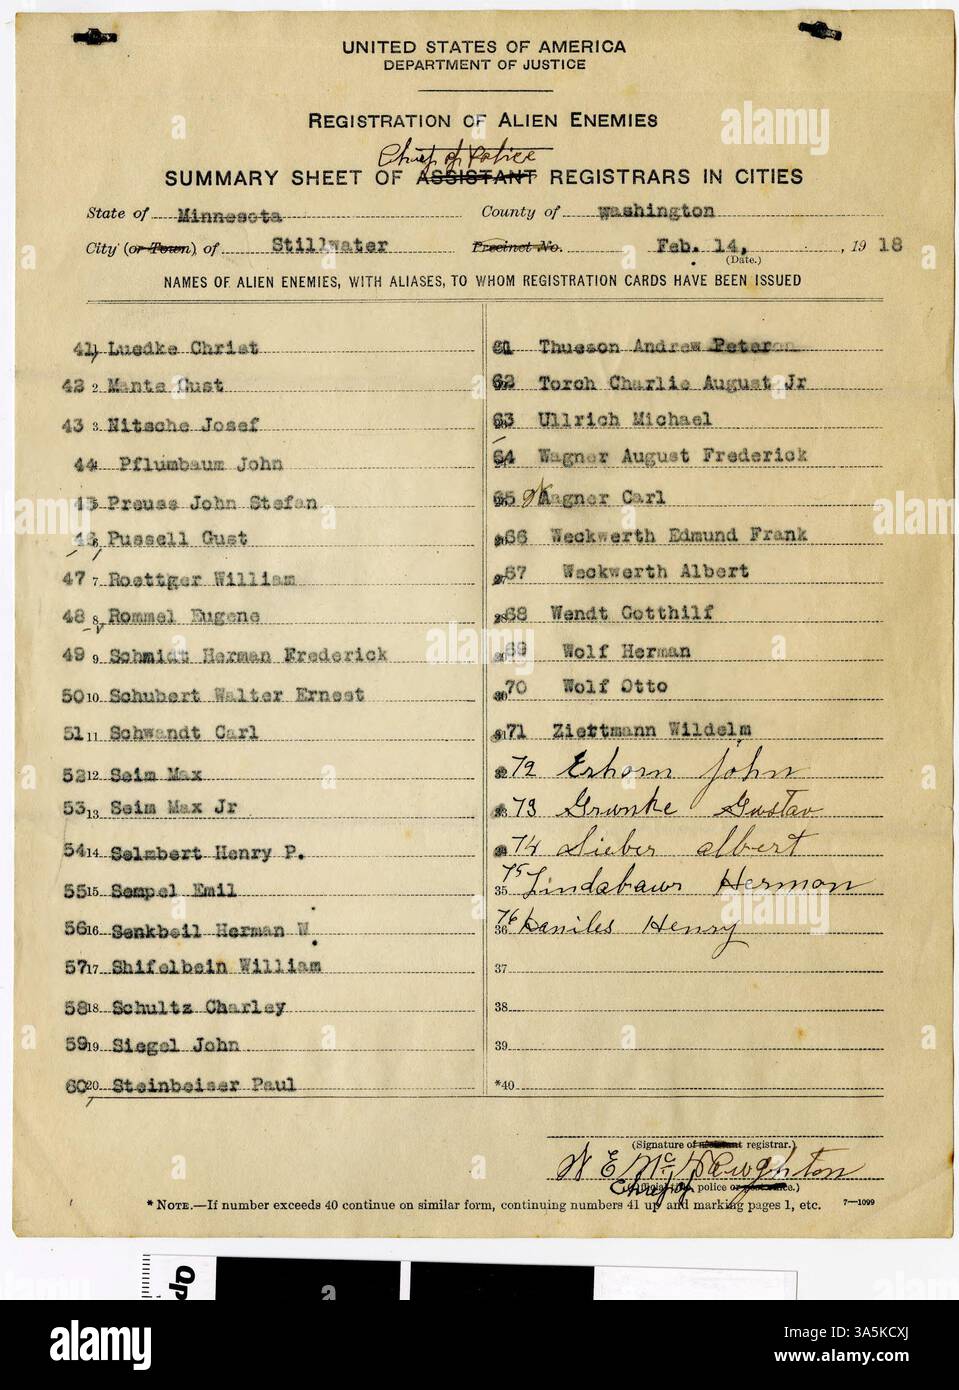 UNITED STATES OF AMERICA
DEPARTMENT OF JUSTICE
REGISTRATION OF ALIEN ENEMIES
Chief of Police
SUMMARY SHEET OF ASSISTANT REGISTRARS IN CITIES
State of Minnesota County of Washington
City (or Town) of Stillwater Precinct No. Feb. 14, 1918
(Date.)
NAMES OF ALIEN ENEMIES, WITH ALIASES, TO WHOM REGISTRATION CARDS HAVE BEEN ISSUED
41 Luedke Christ
42 2 Mante Gust
43 3 Nitsche Josef
44 Pflumbaum John
45 Preuss John Stefan
46 Pussell Gust
47 7 Roettger William
48 8 Rommel Eugene
49 9 Schmidt Herman Frederick
50 10 Schubert Walter Ernest
51 11 Schwandt Carl
52 12 Seim Max
53 13 Seim Max Jr
54 14 Selmbert Henry P.
55 15 Sempel Emil
56 16 Senkbeil Herman W
57 17 Shifelbein William
58 18 Schultz Charley
59 19 Siegel John
60 20 Steinbeiser Paul
61 Thueson Andrew Peter
62 Torch Charlie August Jr
63 Ullrich Michael
64 Wagner August Frederick
65 Wagner Carl
66 Weckwerth Edmund Frank
67 Weckwerth Albert
68 Wendt Gotthilf
69 Wolf Herman
70 Wolf Otto
71 Ziettmann Wildelm
72 Erhorn John
73 Grunke Gustav
74 Sieber Albert
75 35 Lindabaur Herman
76 36 Daniles Henry
37
38
39
*40
(Signature of assistant registrar.)
W E McNaughton
Chief of police
* NOTE.—If number exceeds 40 continue on similar form, continuing numbers 41 up and marking pages 1, etc. 7—1099
alamy
Image ID: 3A5KCXJ
www.alamy.com